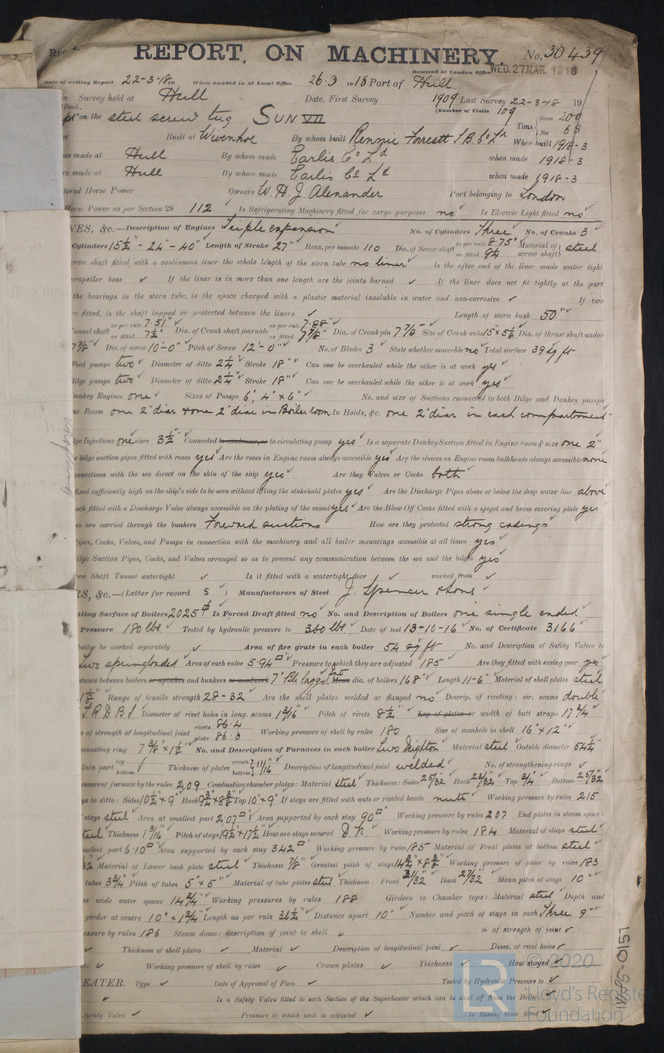 REPORT ON MACHINERY. No. 30439
Received at London Office WED. 27 MAR. 1918
Date of writing Report 22-3-18 19 When handed in at Local Office 26.3 1918 Port of Hull
Survey held at Hull Date, First Survey 1909 Last Survey 22-3-18 19
Book. (Number of Visits 109
on the steel screw tug SUN VII Tons Gross 200 Net 66
Built at Wivenhoe By whom built Rennie Forrestt S.B. Co Ld When built 1918-3
made at Hull By whom made Earle's Co Ld when made 1918-3
made at Hull By whom made Earle's Co Ld when made 1918-3
Horse Power Owners W. H. J. Alexander Port belonging to London
Power as per Section 28 112 Is Refrigerating Machinery fitted for cargo purposes no Is Electric Light fitted no
ES, &c.—Description of Engines Triple expansion No. of Cylinders Three No. of Cranks 3
Cylinders 15½"-24"-40" Length of Stroke 27" Revs. per minute 110 Dia. of Screw shaft as per rule 8.75" as fitted 9¼ Material of screw shaft steel
screw shaft fitted with a continuous liner the whole length of the stern tube no liner Is the after end of the liner made water tight
propeller boss ✓ If the liner is in more than one length are the joints burned ✓ If the liner does not fit tightly at the part
the bearings in the stern tube, is the space charged with a plastic material insoluble in water and non-corrosive ✓ If two
are fitted, is the shaft lapped or protected between the liners ✓ Length of stern bush 50"
Tunnel shaft as per rule 7.51" as fitted 7½" Dia. of Crank shaft journals as per rule 7.88" as fitted 7⅞" Dia. of Crank pin 7⅞" Size of Crank webs 15"×5½" Dia. of thrust shaft under
7⅞" Dia. of screw 10'-0" Pitch of Screw 12'-0" No. of Blades 3 State whether moveable no Total surface 39 sq ft
Feed pumps two Diameter of ditto 2¼" Stroke 18" Can one be overhauled while the other is at work yes
Bilge pumps two Diameter of ditto 2¼" Stroke 18" Can one be overhauled while the other is at work yes
Donkey Engines one Sizes of Pumps 6", 4"×6" No. and size of Suctions connected to both Bilge and Donkey pumps
Room one 2" diar & one 2" diar in Boiler room In Holds, &c. one 2" diar in each compartment
Bilge Injections one sizes 3½" Connected to condenser, or to circulating pump yes Is a separate Donkey Suction fitted in Engine room & size one 2"
bilge suction pipes fitted with roses yes Are the roses in Engine room always accessible yes Are the sluices on Engine room bulkheads always accessible none
connections with the sea direct on the skin of the ship yes Are they Valves or Cocks both
fixed sufficiently high on the ship's side to be seen without lifting the stokehold plates yes Are the Discharge Pipes above or below the deep water line above
each fitted with a Discharge Valve always accessible on the plating of the vessel yes Are the Blow-Off Cocks fitted with a spigot and brass covering plate yes
are carried through the bunkers Forward suctions How are they protected strong casings
Pipes, Cocks, Valves, and Pumps in connection with the machinery and all boiler mountings accessible at all times yes
Bilge Suction Pipes, Cocks, and Valves arranged so as to prevent any communication between the sea and the bilges yes
Screw Shaft Tunnel watertight ✓ Is it fitted with a watertight door ✓ worked from ✓
RS, &c.—(Letter for record S) Manufacturers of Steel J. Spencer & Sons
Heating Surface of Boilers 2025 Is Forced Draft fitted no No. and Description of Boilers one single ended
Pressure 180 lbs Tested by hydraulic pressure to 360 lbs Date of test 13-10-16 No. of Certificate 3166
boiler be worked separately ✓ Area of fire grate in each boiler 54 sq ft No. and Description of Safety Valves to
two spring loaded Area of each valve 5.94 Pressure to which they are adjusted 185 Are they fitted with easing gear yes
distance between boilers or uptakes and bunkers or woodwork 7" Mean dia. of boilers 168" Length 11-6" Material of shell plates steel
1½" Range of tensile strength 28-32 Are the shell plates welded or flanged no Descrip. of riveting: cir. seams double
T.R.D.B.S. Diameter of rivet holes in long. seams 1 3/16" Pitch of rivets 8½" Lap of plates or width of butt straps 17¾"
of strength of longitudinal joint rivets 86.4 plate 86.0 Working pressure of shell by rules 180 Size of manhole in shell 16"×12"
compensating ring 7⅜"×1½" No. and Description of Furnaces in each boiler two Deighton Material steel Outside diameter 54½"
plain part top bottom Thickness of plates crown bottom 11/16" Description of longitudinal joint welded No. of strengthening rings ✓
pressure of furnace by the rules 209 Combustion chamber plates: Material steel Thickness: Sides 25/32" Back 23/32" Top ¾" Bottom 25/32"
to ditto: Sides 10½×9" Top 10"×9" If stays are fitted with nuts or riveted heads nuts Working pressure by rules 215
stays steel Area at smallest part 2.07 Area supported by each stay 90 Working pressure by rules 207 End plates in steam space
steel Thickness 1 3/16" Pitch of stays 19½×17½" How are stays secured D.N. Working pressure by rules 184 Material of stays steel
smallest part 6.10 Area supported by each stay 342 Working pressure by rules 185 Material of Front plates at bottom steel
Material of Lower back plate steel Thickness ⅞" Greatest pitch of stays 14½×8½" Working pressure of plate by rules 183
tubes 3¾" Pitch of tubes 5"×5" Material of tube plates steel Thickness: Front 31/32" Back 27/32" Mean pitch of stays 10"
wide water spaces 14¾" Working pressures by rules 188 Girders to Chamber tops: Material steel Depth and
girder at centre 10"×1¾" Length as per rule 36½" Distance apart 10" Number and pitch of stays in each three 9"
pressure by rules 186 Steam dome: description of joint to shell ✓ % of strength of joint ✓
✓ Thickness of shell plates ✓ Material ✓ Description of longitudinal joint ✓ Diam. of rivet holes ✓
✓ Working pressure of shell by rules ✓ Crown plates ✓ Thickness ✓ How stayed ✓
EATER. Type ✓ Date of Approval of Plan ✓ Tested by Hydraulic Pressure to ✓
✓ Is a Safety Valve fitted to each Section of the Superheater which can be shut off from the Boiler ✓
Safety Valve ✓ Pressure to which each is adjusted ✓ Is Easing Gear fitted ✓
© 2020
Lloyd's Register
Foundation
LR